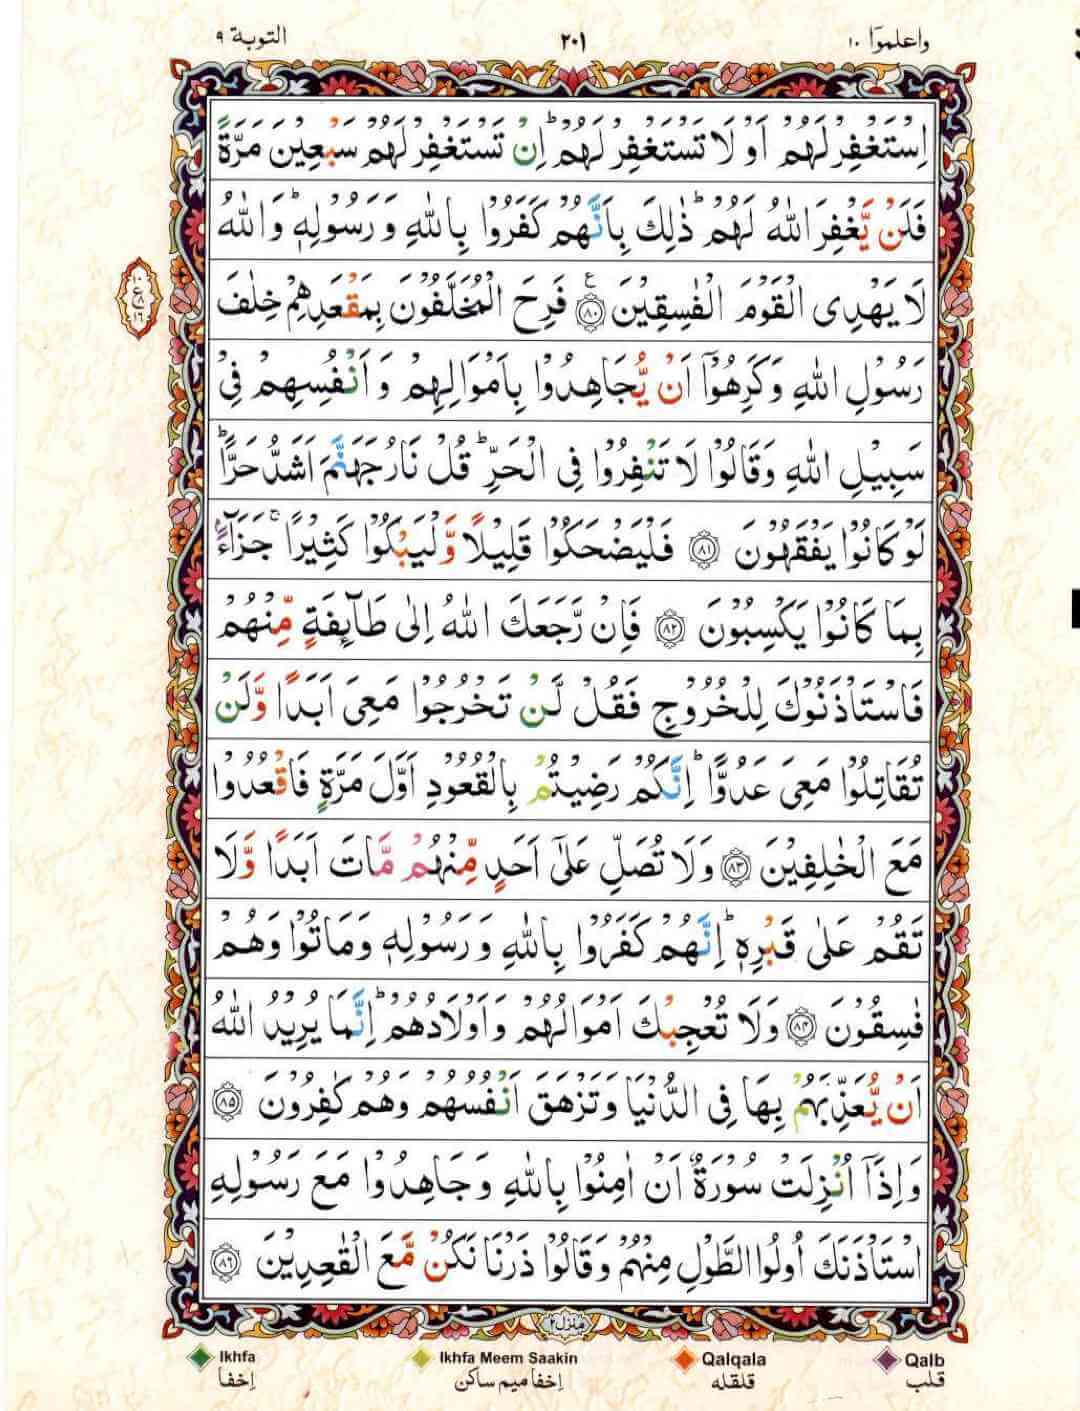 التوبة ٩ ٢٠١ واعلموۤا ١٠
اِسْتَغْفِرْ لَهُمْ اَوْ لَا تَسْتَغْفِرْ لَهُمْ ؕ اِنْ تَسْتَغْفِرْ لَهُمْ سَبْعِيْنَ مَرَّةً
فَلَنْ يَّغْفِرَ اللّٰهُ لَهُمْ ؕ ذٰلِكَ بِاَنَّهُمْ كَفَرُوْا بِاللّٰهِ وَ رَسُوْلِهٖ ؕ وَ اللّٰهُ
لَا يَهْدِى الْقَوْمَ الْفٰسِقِيْنَ ﴿٨٠﴾ ع فَرِحَ الْمُخَلَّفُوْنَ بِمَقْعَدِهِمْ خِلٰفَ
١٠
ع
١٦
رَسُوْلِ اللّٰهِ وَ كَرِهُوْۤا اَنْ يُّجَاهِدُوْا بِاَمْوَالِهِمْ وَ اَنْفُسِهِمْ فِىْ
سَبِيْلِ اللّٰهِ وَ قَالُوْا لَا تَنْفِرُوْا فِى الْحَرِّ ؕ قُلْ نَارُ جَهَنَّمَ اَشَدُّ حَرًّا ؕ
لَوْ كَانُوْا يَفْقَهُوْنَ ﴿٨١﴾ فَلْيَضْحَكُوْا قَلِيْلًا وَّ لْيَبْكُوْا كَثِيْرًا ۚ جَزَآءًۢ
بِمَا كَانُوْا يَكْسِبُوْنَ ﴿٨٢﴾ فَاِنْ رَّجَعَكَ اللّٰهُ اِلٰى طَآىِٕفَةٍ مِّنْهُمْ
فَاسْتَاْذَنُوْكَ لِلْخُرُوْجِ فَقُلْ لَّنْ تَخْرُجُوْا مَعِىَ اَبَدًا وَّ لَنْ
تُقَاتِلُوْا مَعِىَ عَدُوًّا ؕ اِنَّكُمْ رَضِيْتُمْ بِالْقُعُوْدِ اَوَّلَ مَرَّةٍ فَاقْعُدُوْا
مَعَ الْخٰلِفِيْنَ ﴿٨٣﴾ وَ لَا تُصَلِّ عَلٰۤى اَحَدٍ مِّنْهُمْ مَّاتَ اَبَدًا وَّ لَا
تَقُمْ عَلٰى قَبْرِهٖ ؕ اِنَّهُمْ كَفَرُوْا بِاللّٰهِ وَ رَسُوْلِهٖ وَ مَاتُوْا وَ هُمْ
فٰسِقُوْنَ ﴿٨٤﴾ وَ لَا تُعْجِبْكَ اَمْوَالُهُمْ وَ اَوْلَادُهُمْ ؕ اِنَّمَا يُرِيْدُ اللّٰهُ
اَنْ يُّعَذِّبَهُمْ بِهَا فِى الدُّنْيَا وَ تَزْهَقَ اَنْفُسُهُمْ وَ هُمْ كٰفِرُوْنَ ﴿٨٥﴾
وَ اِذَاۤ اُنْزِلَتْ سُوْرَةٌ اَنْ اٰمِنُوْا بِاللّٰهِ وَ جَاهِدُوْا مَعَ رَسُوْلِهِ
اسْتَاْذَنَكَ اُولُوا الطَّوْلِ مِنْهُمْ وَ قَالُوْا ذَرْنَا نَكُنْ مَّعَ الْقٰعِدِيْنَ ﴿٨٦﴾
منزل ٢
Ikhfa Ikhfa Meem Saakin Qalqala Qalb
اِخفا اِخفا میم ساکن قلقله قلب